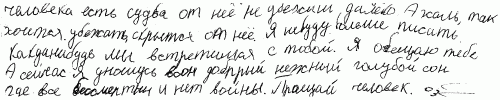 человека есть судьба от неё не убежишь далеко А жаль, так
хочется убежать, скрыться от неё. Я не буду больше писать
Когданибудь мы встретимся с тобой. Я обещаю тебе
А сейчас я уношусь в сон добрый нежный голубой сон
где все бессмертны и нет войны. Прощай человек.